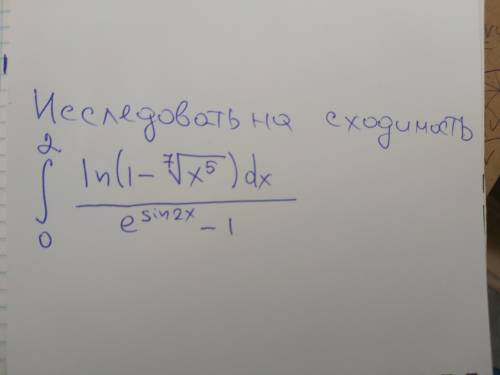 Исследовать на сходимость
2
∫ ln(1 - ⁷√x⁵) dx
e^sin2x - 1
0